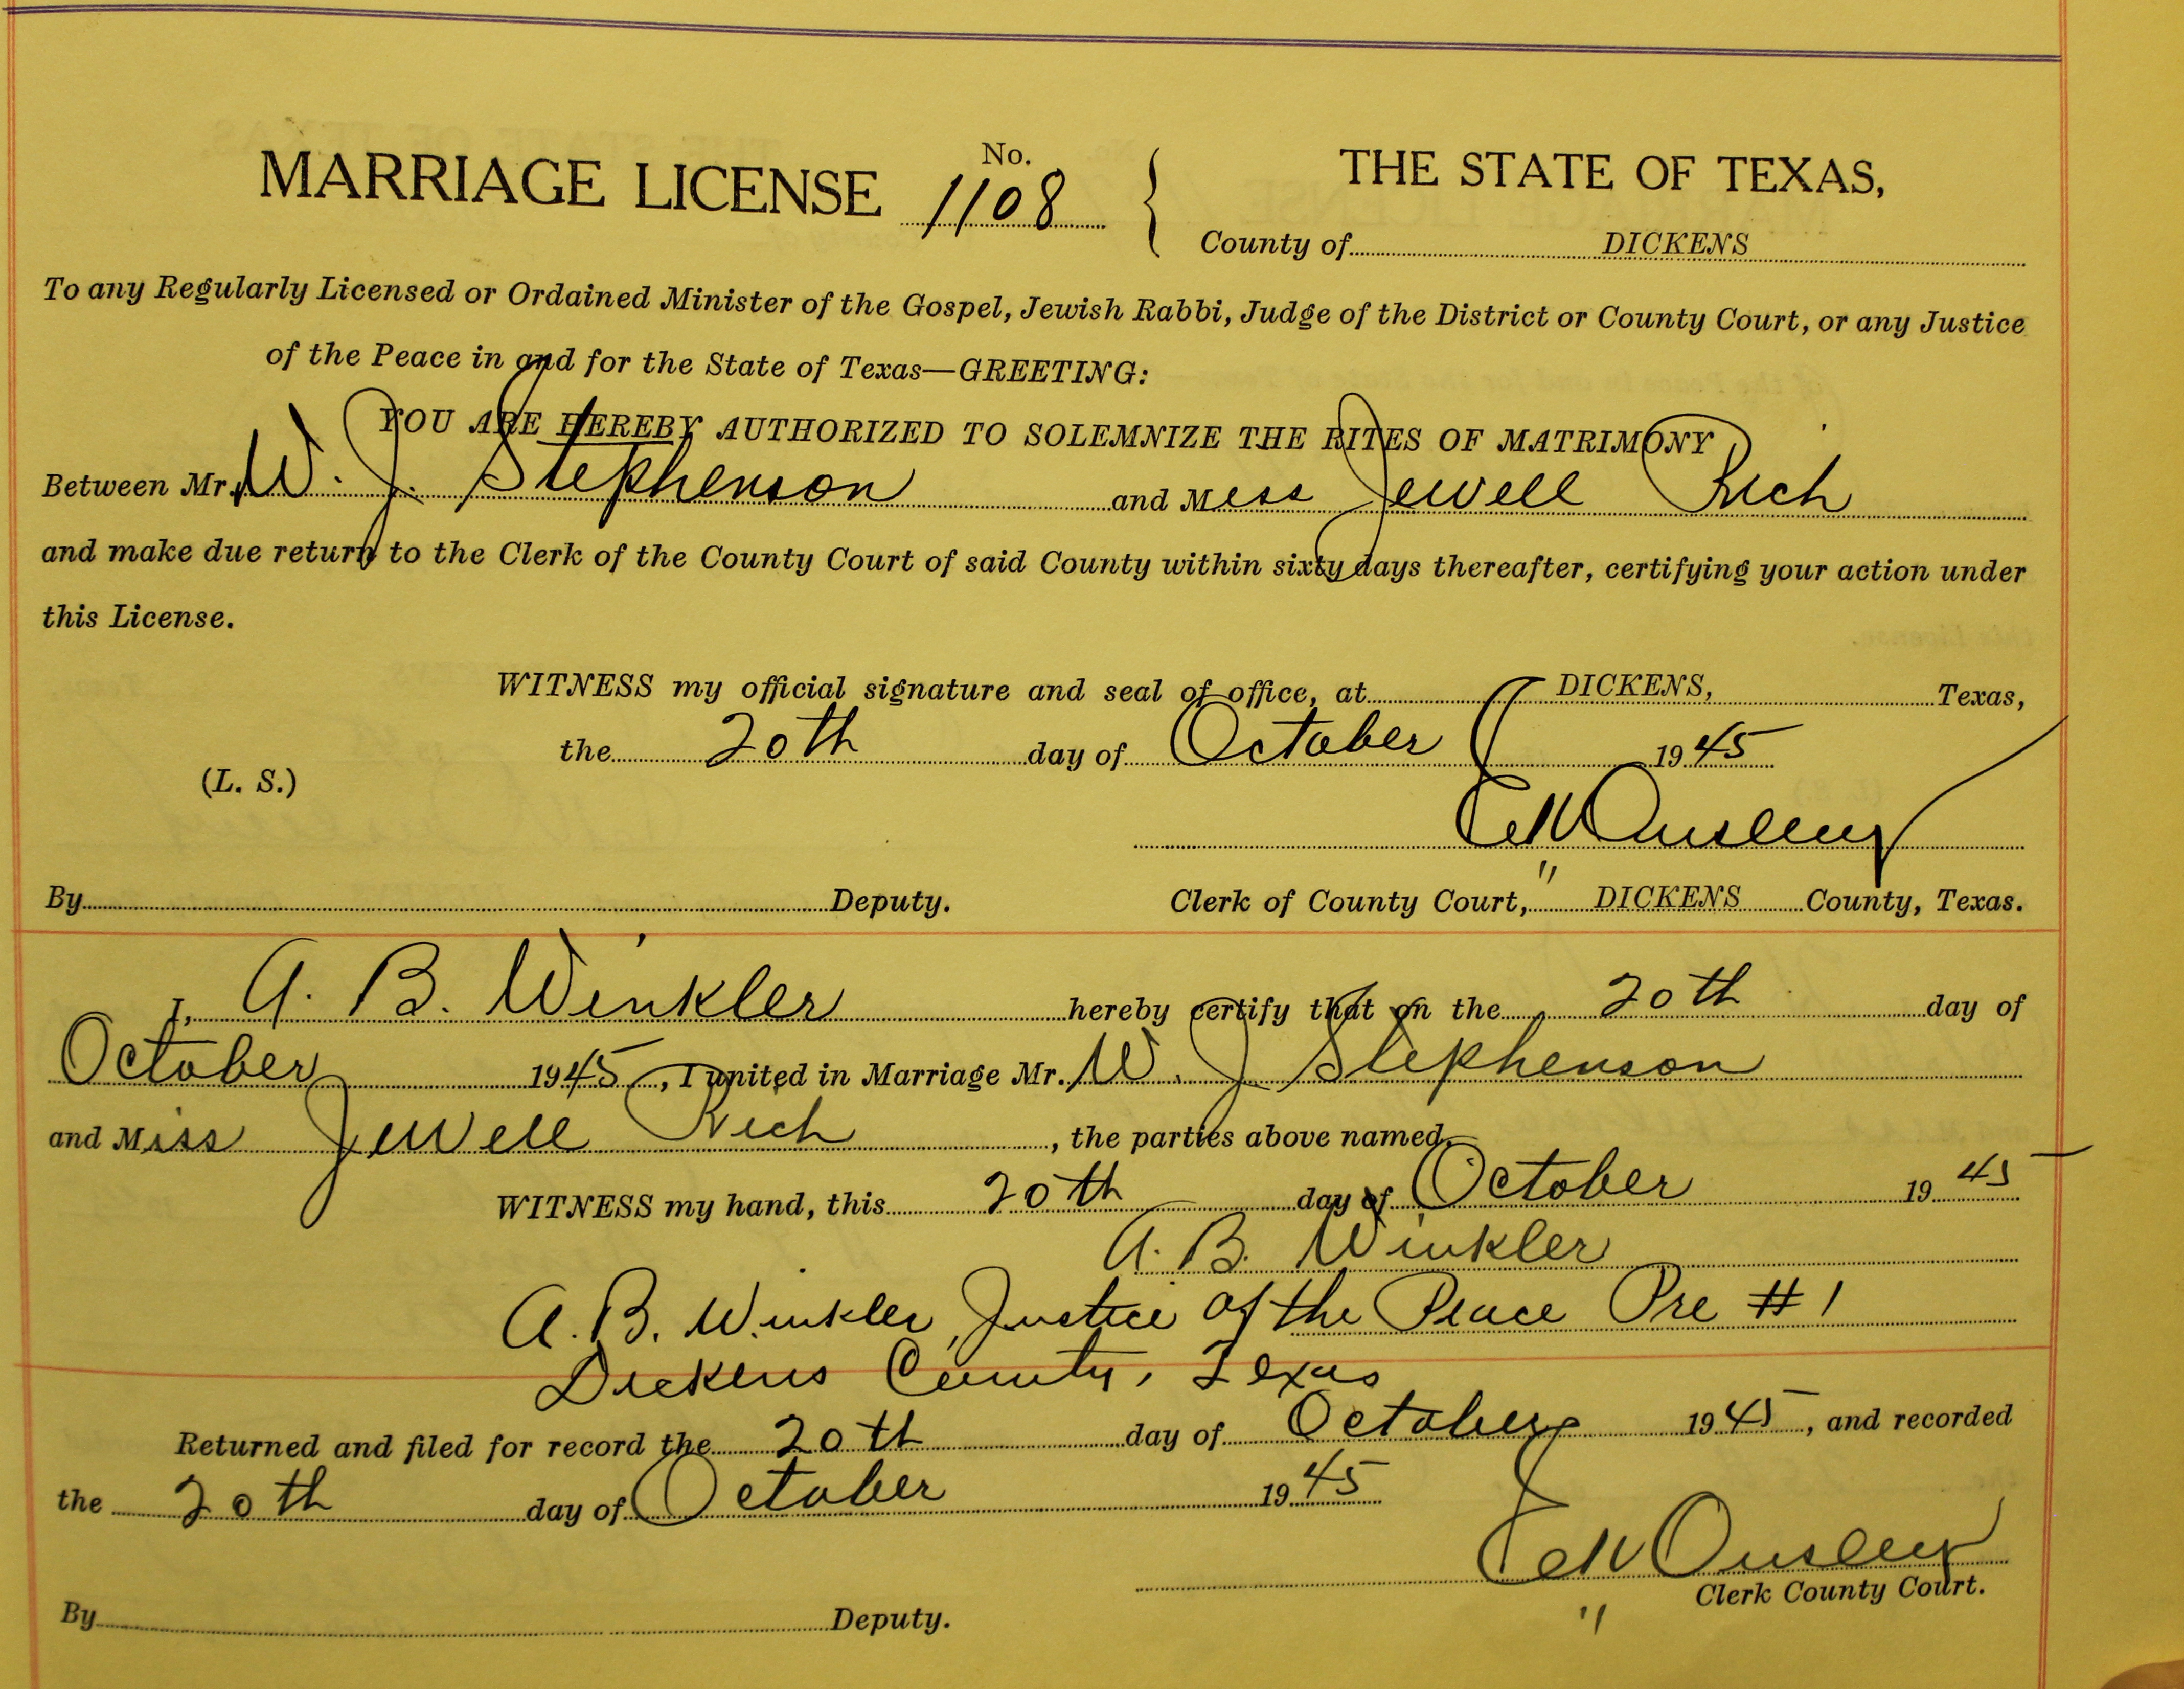 MARRIAGE LICENSE No. 1108 { THE STATE OF TEXAS,
County of DICKENS
To any Regularly Licensed or Ordained Minister of the Gospel, Jewish Rabbi, Judge of the District or County Court, or any Justice
of the Peace in and for the State of Texas—GREETING:
YOU ARE HEREBY AUTHORIZED TO SOLEMNIZE THE RITES OF MATRIMONY
Between Mr. W. J. Stephenson and Miss Jewell Rich
and make due return to the Clerk of the County Court of said County within sixty days thereafter, certifying your action under
this License.
WITNESS my official signature and seal of office, at DICKENS, Texas,
the 20th day of October 1945
(L. S.)
Ousley
By Deputy. Clerk of County Court, " DICKENS County, Texas.
I, A. B. Winkler hereby certify that on the 20th day of
October 1945, I united in Marriage Mr. W. J Stephenson
and Miss Jewell Rich, the parties above named.
WITNESS my hand, this 20th day of October 1945
A. B. Winkler
A. B. Winkler, Justice of the Peace Pre #1
Dickens County, Texas
Returned and filed for record the 20th day of October 1945, and recorded
the 20th day of October 1945
Ousley
Clerk County Court.
By Deputy. "